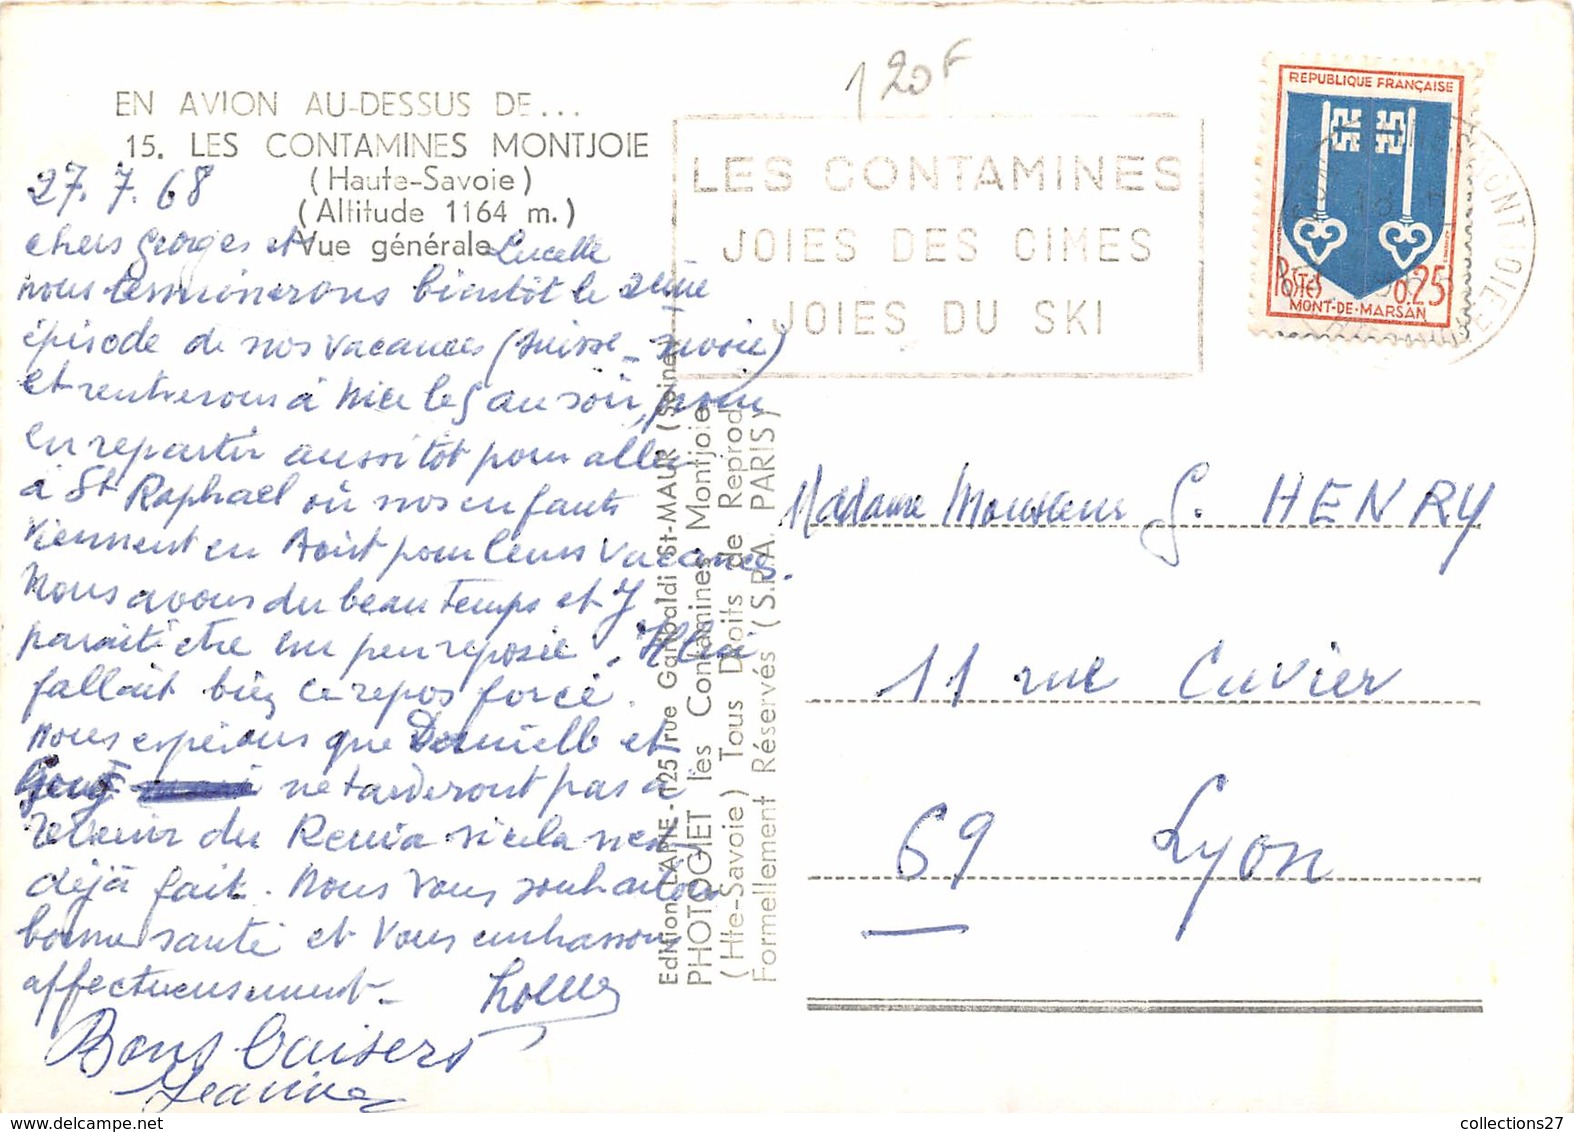 EN AVION AU-DESSUS DE...
15. LES CONTAMINES MONTJOIE
(Haute-Savoie)
(Altitude 1164 m.)
Vue générale
27.7.68
chers Georges et Lucette
nous terminerons bientôt le 2ème
épisode de nos vacances (Suisse - Savoie)
et rentrerons à Nice le 5 au soir, pour
en repartir aussitôt pour aller
à St Raphael où nos enfants
viennent en Août pour leurs vacances.
Nous avons du beau temps et J
parait être un peu reposée. Il lui
fallait bien ce repos forcé.
Nous espérons que Danielle et
ne tarderont pas à
revenir du si cela n'est
déjà fait. Nous vous souhaitons
bonne santé et vous embrassons
affectueusement.
Bons baisers
Jeanine
Editions LAPIE - 125 rue Garibaldi St-MAUR (Seine)
PHOTO GIET les Contamines Montjoie
(Hte-Savoie) Tous Droits de Reprod.
Formellement Réservés (S.P.A. PARIS)
120F
LES CONTAMINES
JOIES DES CIMES
JOIES DU SKI
REPUBLIQUE FRANÇAISE
POSTES 0,25
MONT-DE-MARSAN
MONTJOIE
Madame Monsieur G. HENRY
11 rue Cuvier
69 Lyon
collections27